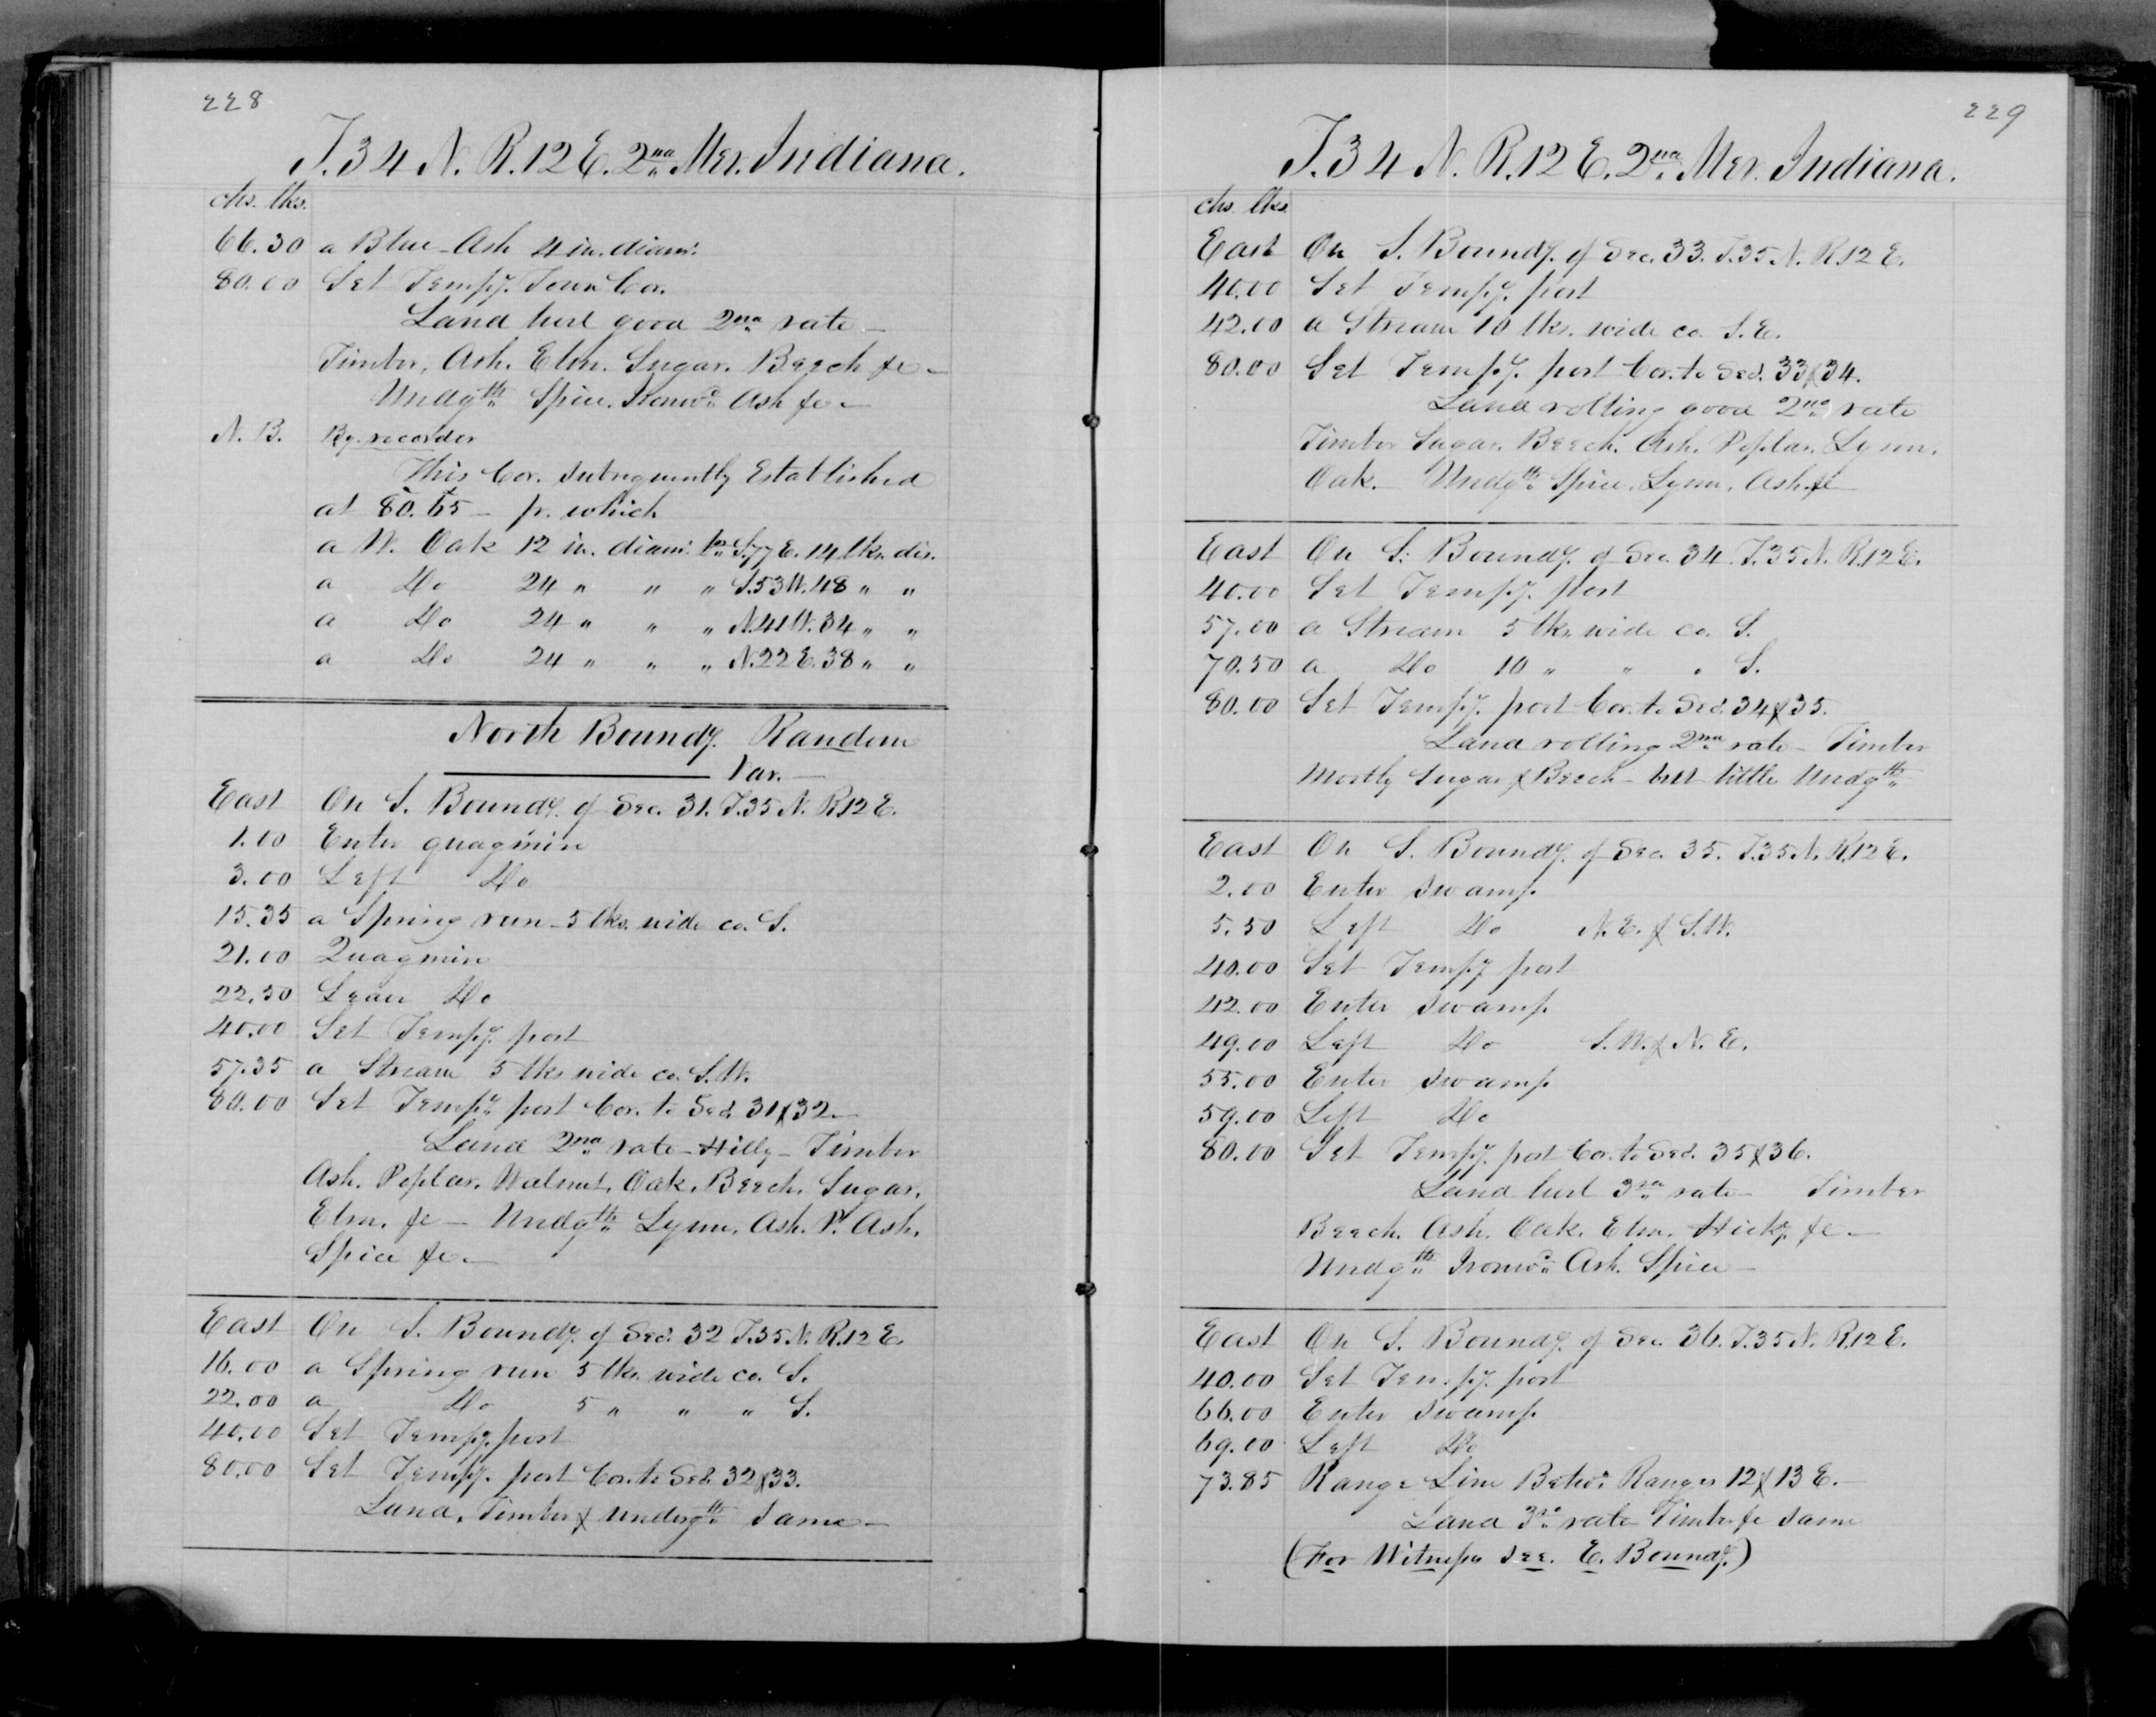 228
T. 34 N. R. 12 E. 2nd Mer. Indiana.
chs. lks.
66.30 a Blue-Ash 4 in. diamr.
80.00 Set Tempy. Town Cor.
Land level good 2nd rate -
Timber, Ash. Elm. Sugar. Beech &c -
Undgth Spice. Ironwd. Ash &c -
N. B. By recorder
This Cor. subsequently Established
at 80.65 - fr. which
a W. Oak 12 in. diamr. brs S. 77 E. 14 lks. dis.
a Do 24 " " " S. 53 W. 48 " "
a Do 24 " " " N. 41 W. 34 " "
a Do 24 " " " N. 22 E. 38 " "
North Boundy. Random
Var. -
East On S. Boundy. of Sec. 31. T. 35 N. R. 12 E.
1.00 Enter quagmire
3.00 Left Do
15.35 a Spring run - 5 lks. wide co. S.
21.00 Quagmire
22.50 Leave Do
40.00 Set Tempy. post
57.35 a Stream 5 lks wide co. S.W.
80.00 Set Tempy. post Cor. to Secs. 31 & 32 -
Land 2nd rate - Hilly - Timber
Ash. Poplar. Walnut. Oak. Beech. Sugar.
Elm. &c - Undgth Lynn. Ash. P. Ash.
Spice &c -
East On S. Boundy. of Sec. 32 T. 35 N. R. 12 E.
16.00 a Spring run 5 lks. wide co. S.
22.00 a Do 5 " " " S.
40.00 Set Tempy. post
80.00 Set Tempy. post Cor. to Secs. 32 & 33.
Land, Timber & undergth same -
229
T. 34 N. R. 12 E. 2nd Mer. Indiana.
chs. lks.
East On S. Boundy. of Sec. 33. T. 35 N. R. 12 E.
40.00 Set Tempy. post
42.00 a Stream 10 lks. wide co. S. E.
80.00 Set Tempy. post Cor. to Secs. 33 & 34.
Land rolling good 2nd rate
Timber Sugar. Beech. Ash. Poplar. Lynn.
Oak. Undgth Spice. Lynn. Ash &c
East On S. Boundy. of Sec. 34 T. 35 N. R. 12 E.
40.00 Set Tempy. post
57.00 a Stream 5 lks. wide co. S.
70.50 a Do 10 " " " S.
80.00 Set Tempy. post Cor. to Secs. 34 & 35.
Land rolling 2nd rate - Timber
mostly Sugar & Beech - but little Undgth
East On S. Boundy. of Sec. 35. T. 35 N. R. 12 E.
2.00 Enter swamp
5.50 Left Do N. E. & S. W.
40.00 Set Tempy post
42.00 Enter swamp
49.00 Left Do S. W. & N. E.
55.00 Enter swamp
59.00 Left Do
80.00 Set Tempy. post Cor. to Secs. 35 & 36.
Land level 3rd rate - Timber
Beech. Ash. Oak. Elm. Hicky. &c -
Undgth Ironwd. Ash. Spice -
East On S. Boundy. of Sec. 36. T. 35 N. R. 12 E.
40.00 Set Tempy. post
66.00 Enter swamp
69.00 Left Do
73.85 Range Line Betwn. Ranges 12 & 13 E. -
Land 3rd rate Timber &c same
(For Witness see. E. Boundy.)